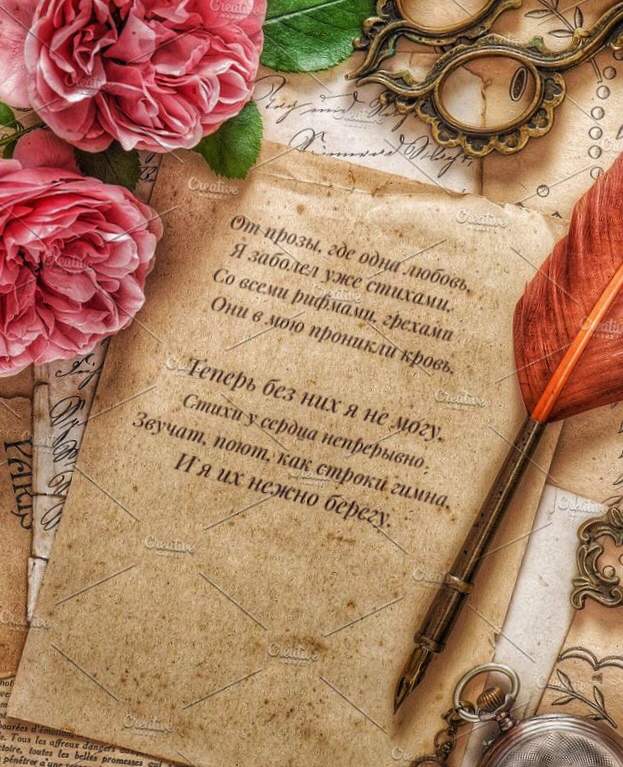 От прозы, где одна любовь,
Я заболел уже стихами.
Со всеми рифмами, грехами
Они в мою проникли кровь.
Теперь без них я не могу.
Стихи у сердца непрерывно.
Звучат, поют, как строки гимна,
И я их нежно берегу.
bourées d'émotion
Tous les affreux dangers
toutes les belles promesses qui
pénétrer d'une
Creative